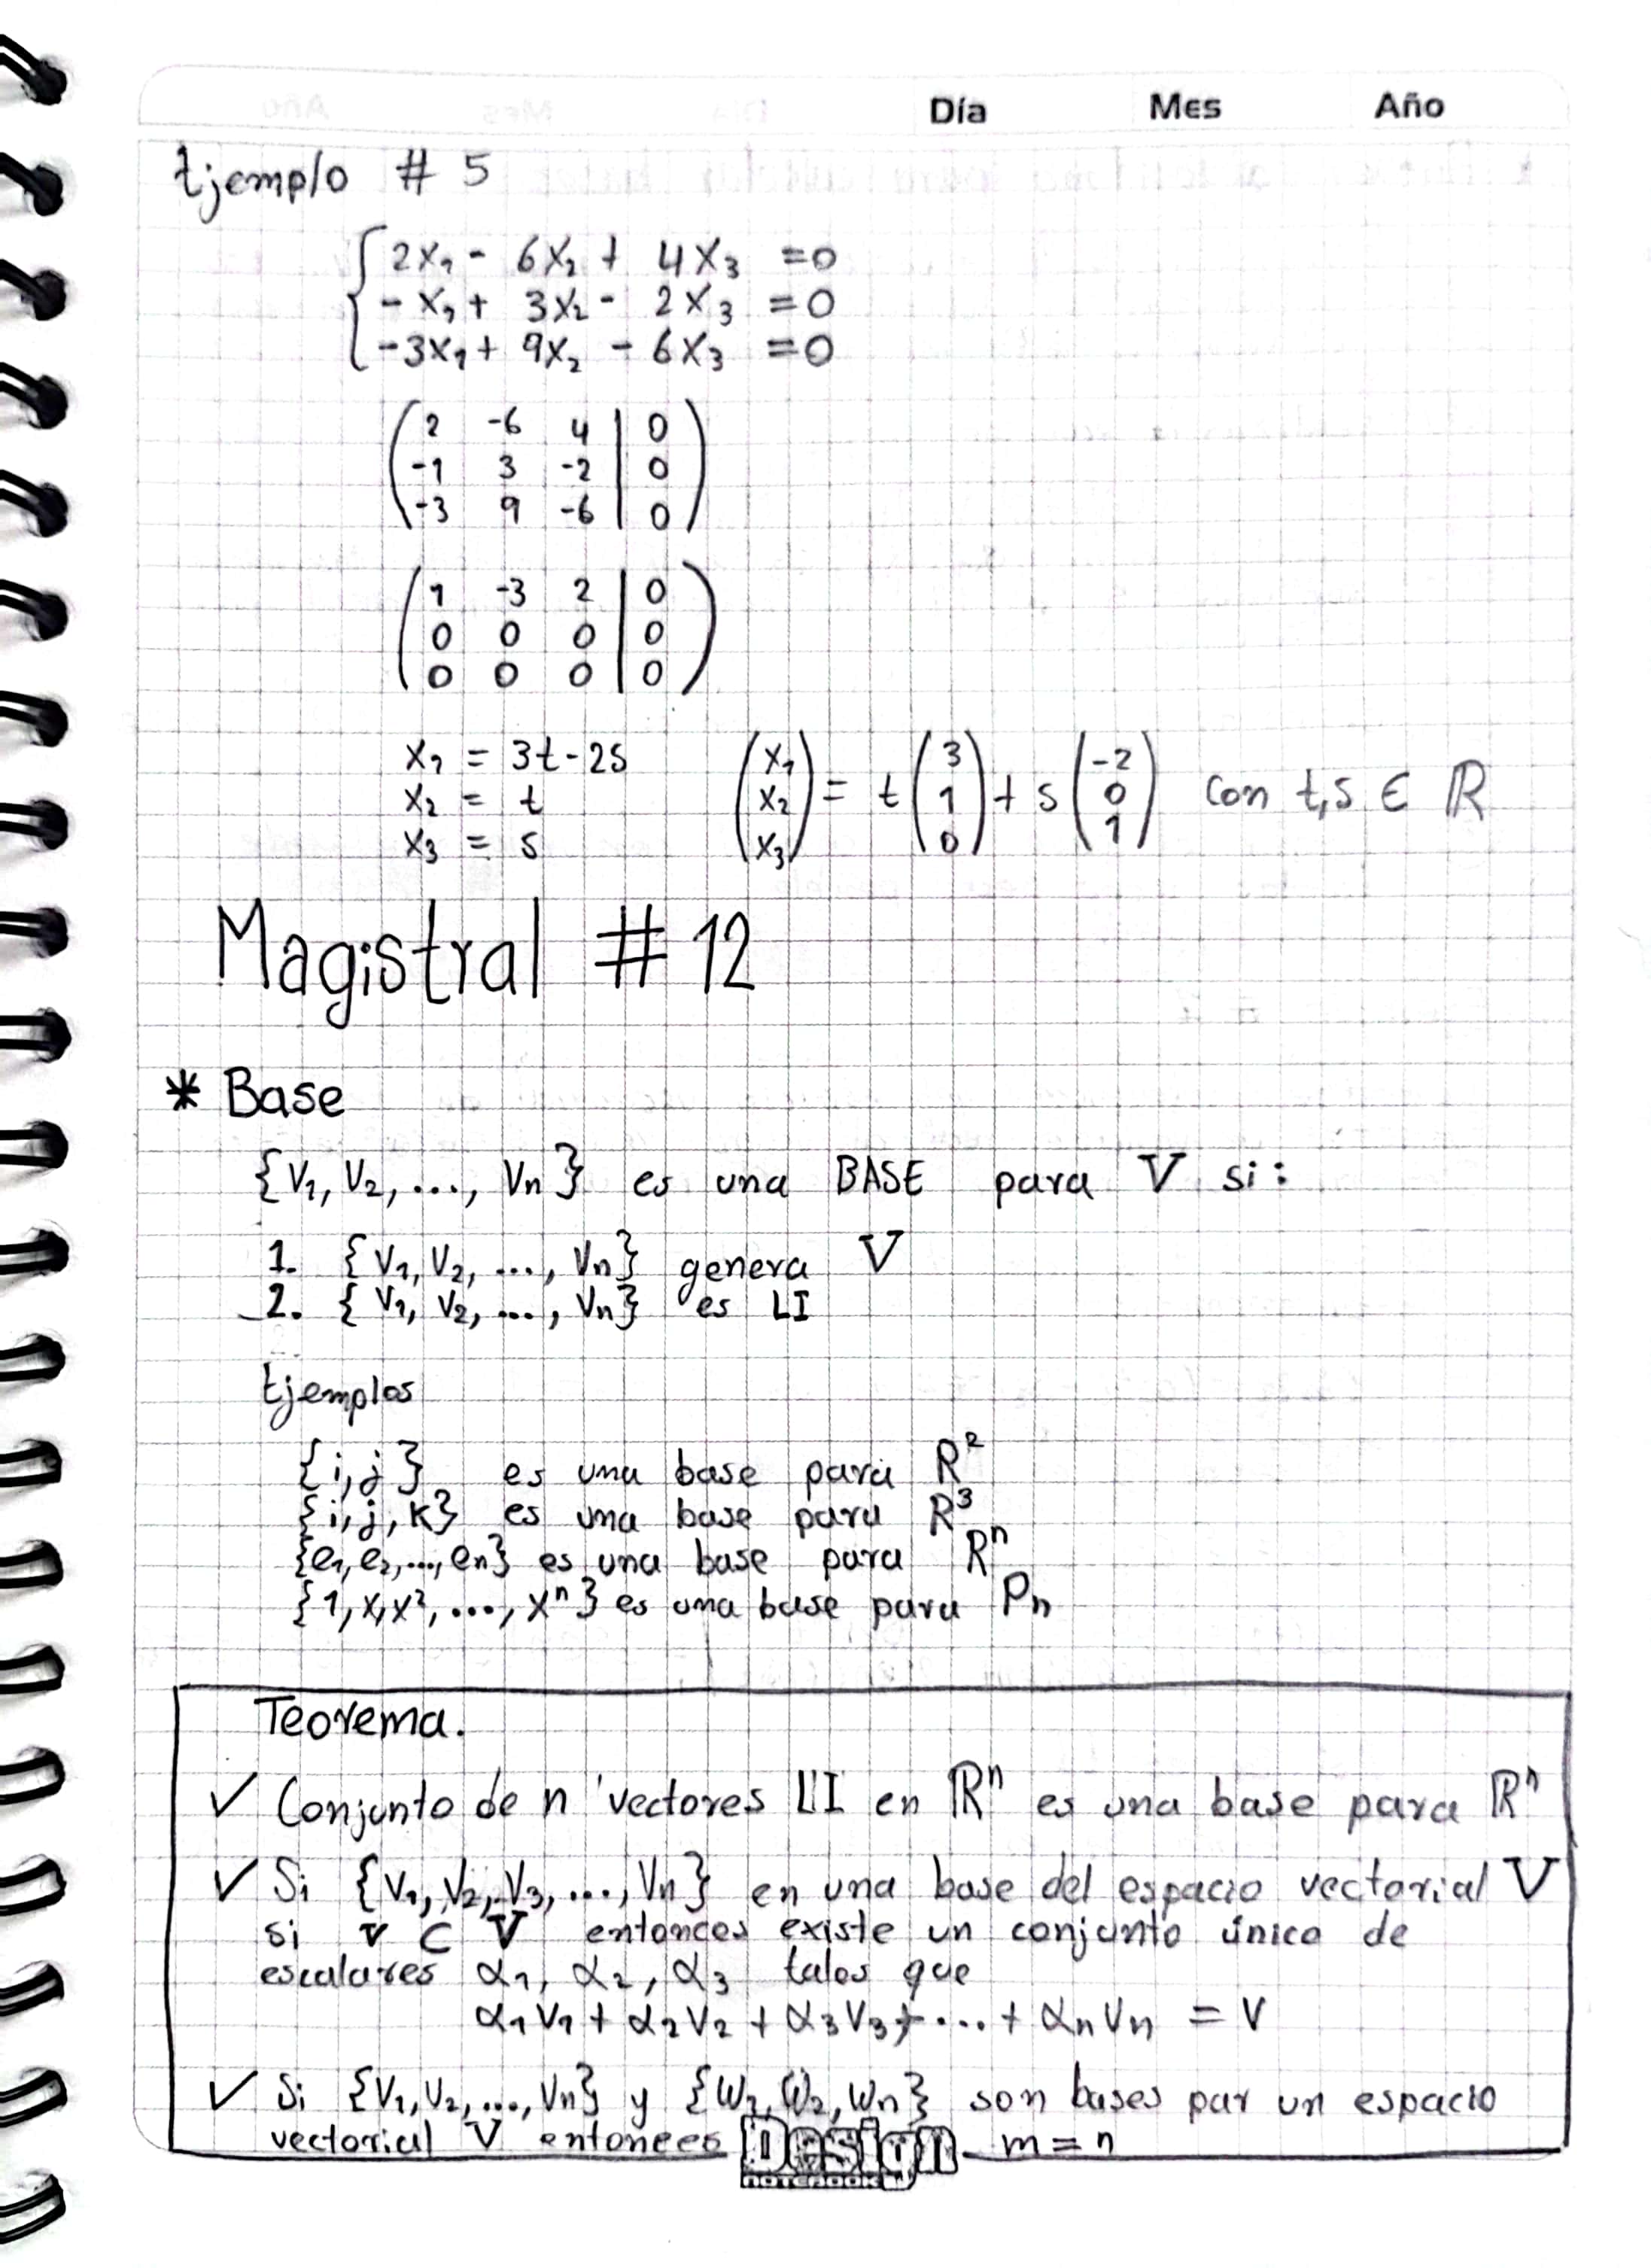 Día Mes Año
Ejemplo # 5
2x₁ - 6x₂ + 4x₃ = 0
- x₁ + 3x₂ - 2x₃ = 0
-3x₁ + 9x₂ - 6x₃ = 0
2 -6 4 | 0
-1 3 -2 | 0
-3 9 -6 | 0
1 -3 2 | 0
0 0 0 | 0
0 0 0 | 0
x₁ = 3t - 2s
x₂ = t
x₃ = s
(x₁ x₂ x₃) = t (3 1 0) + s (-2 0 1) con t,s ∈ ℝ
Magistral # 12
* Base
{v₁, v₂, ..., vn} es una BASE para V si:
1. {v₁, v₂, ..., vn} genera V
2. {v₁, v₂, ..., vn} es LI
Ejemplos
{i, j} es una base para R²
{i, j, k} es una base para R³
{e₁, e₂, ..., en} es una base para Rⁿ
{1, x, x², ..., xⁿ} es una base para Pn
Teorema.
✓ Conjunto de n vectores LI en ℝⁿ es una base para ℝⁿ
✓ Si {v₁, v₂, v₃, ..., vn} en una base del espacio vectorial V
si v ⊂ V entonces existe un conjunto único de
escalares α₁, α₂, α₃ tales que
α₁v₁ + α₂v₂ + α₃v₃ + ... + αnvn = v
✓ Si {v₁, v₂, ..., vn} y {w₁, w₂, wn} son bases par un espacio
vectorial V entonces m = n
Design
NOTEBOOK